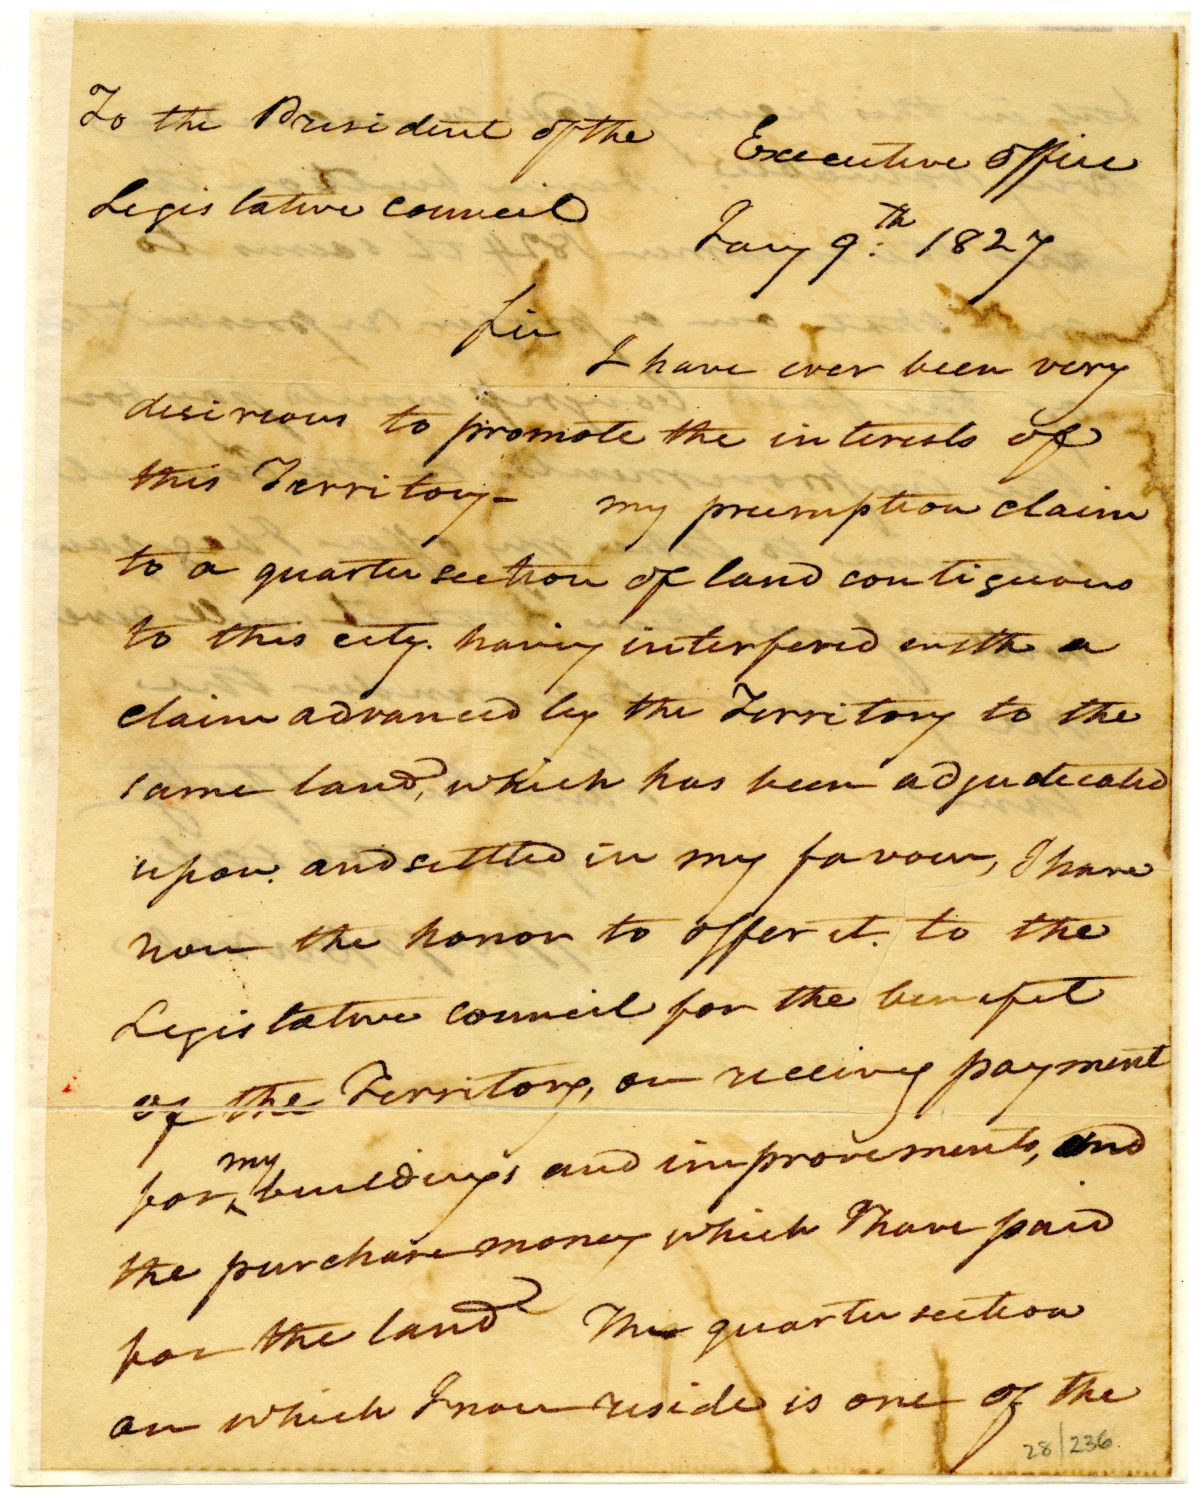 To the President of the
Legislative council
Executive office
Jany 9th: 1827
Sir
I have ever been very
desireous to promote the interests of
this Territory- my preemption claim
to a quarter section of land contiguous
to this city. having interfered with a
claim advanced by the Territory to the
same land, which has been adjudicated
upon. and settled in my favour, I have
now the honor to offer it. to the
Legislative council for the benefit
of the Territory, on receiving payment
for my buildings and improvements, and
the purchase money which I have paid
for the land The quarter section
on which I now reside is one of the
28/236